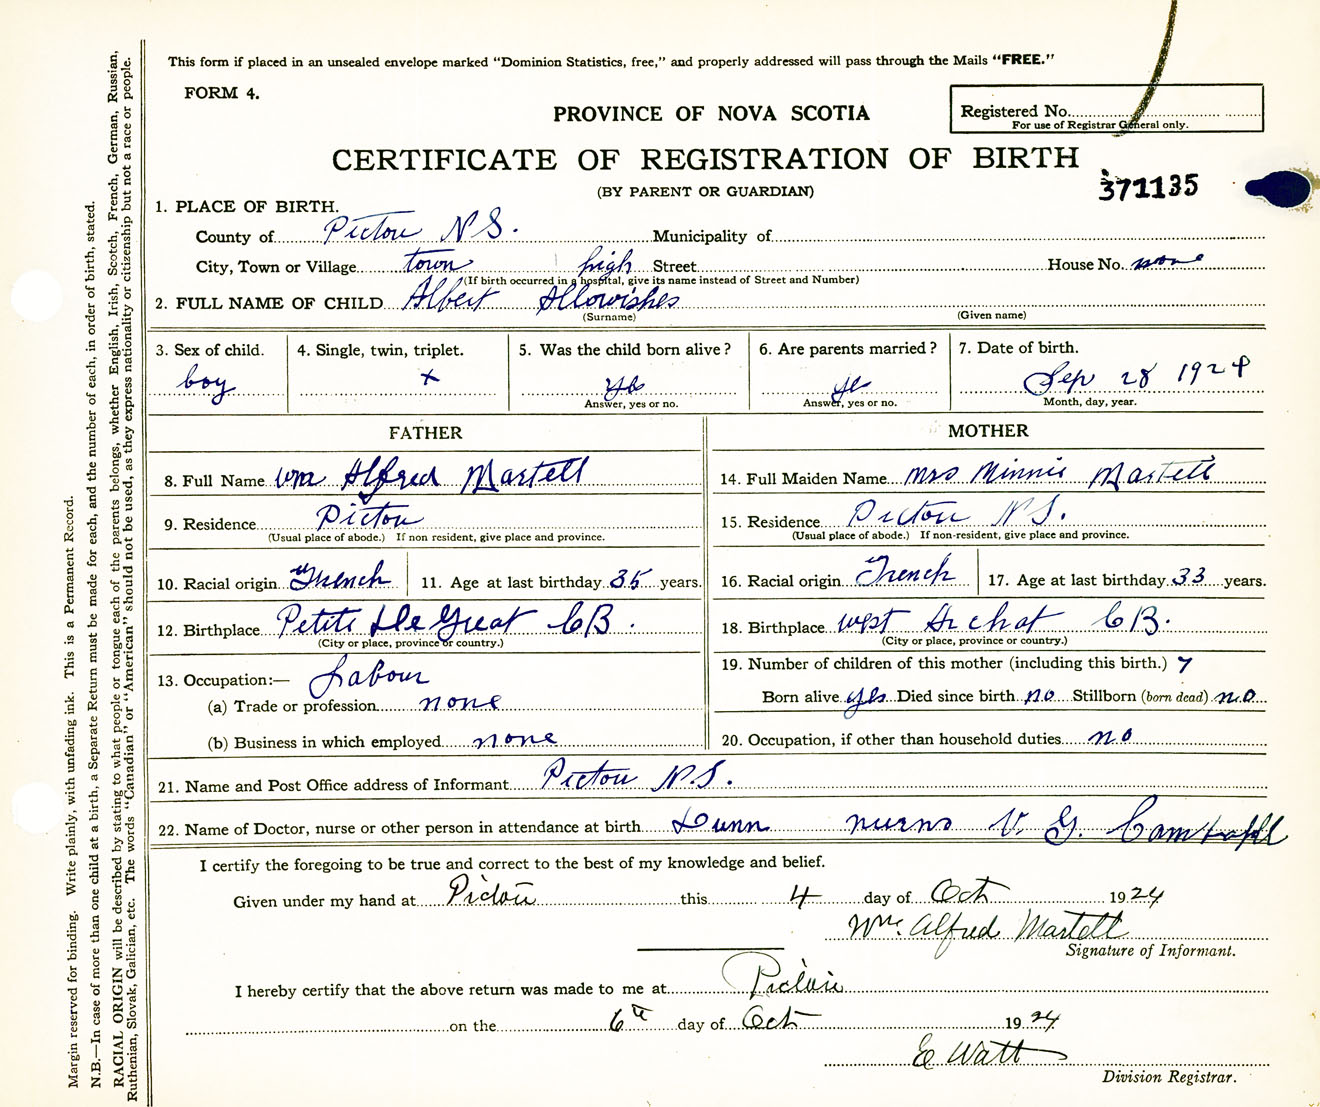 This form if placed in an unsealed envelope marked "Dominion Statistics, free," and properly addressed will pass through the Mails "FREE."
FORM 4.
PROVINCE OF NOVA SCOTIA
Registered No.
For use of Registrar General only.
CERTIFICATE OF REGISTRATION OF BIRTH
(BY PARENT OR GUARDIAN)
371135
1. PLACE OF BIRTH.
County of Pictou N S. Municipality of
City, Town or Village town high Street House No. none
(If birth occurred in a hospital, give its name instead of Street and Number)
2. FULL NAME OF CHILD Albert Allowishes
(Surname) (Given name)
3. Sex of child. 4. Single, twin, triplet. 5. Was the child born alive? 6. Are parents married? 7. Date of birth.
boy x yes yes Sep 28 1924
Answer, yes or no. Answer, yes or no. Month, day, year.
FATHER MOTHER
8. Full Name Wm Alfred Martell 14. Full Maiden Name Mrs Minnie Martell
9. Residence Pictou 15. Residence Pictou N S.
(Usual place of abode.) If non resident, give place and province. (Usual place of abode.) If non-resident, give place and province.
10. Racial origin French 11. Age at last birthday 35 years. 16. Racial origin French 17. Age at last birthday 33 years.
12. Birthplace Petite De Great CB. 18. Birthplace west Archat CB.
(City or place, province or country.) (City or place, province or country.)
13. Occupation:— Labour 19. Number of children of this mother (including this birth.) 7
(a) Trade or profession none Born alive yes Died since birth no Stillborn (born dead) no
(b) Business in which employed none 20. Occupation, if other than household duties no
21. Name and Post Office address of Informant Pictou N.S.
22. Name of Doctor, nurse or other person in attendance at birth Dunn V. G.
I certify the foregoing to be true and correct to the best of my knowledge and belief.
Given under my hand at Pictou this 4 day of Oct 1924
Wm. Alfred Martell
Signature of Informant.
I hereby certify that the above return was made to me at Pictou
on the 6th day of Oct 1924
E Watt
Division Registrar.
Margin reserved for binding. Write plainly, with unfading ink. This is a Permanent Record.
N.B.—In case of more than one child at a birth, a Separate Return must be made for each, and the number of each, in order of birth, stated.
RACIAL ORIGIN will be described by stating to what people or tongue each of the parents belongs, whether English, Irish, Scotch, French, German, Russian,
Ruthenian, Slovak, Galician, etc. The words "Canadian" or "American" should not be used, as they express nationality or citizenship but not a race or people.